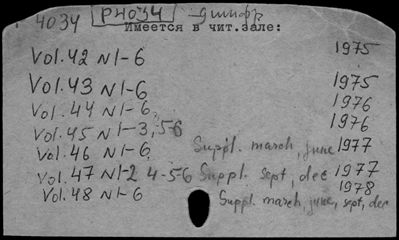 4034 P4034 -9 шифр
Имеется в чит.зале:
Vol.42 N1-6 1975
Vol.43 N1-6 1975
Vol.44 N1-6, 1976
Vol.45 N1-3, 5-6 1976
Vol.46 N1-6, Suppl. march, june 1977
Vol.47 N1-2 4-5-6 Suppl. sept, dec 1977
Vol.48 N1-6 1978
Suppl. march, june, sept, dec